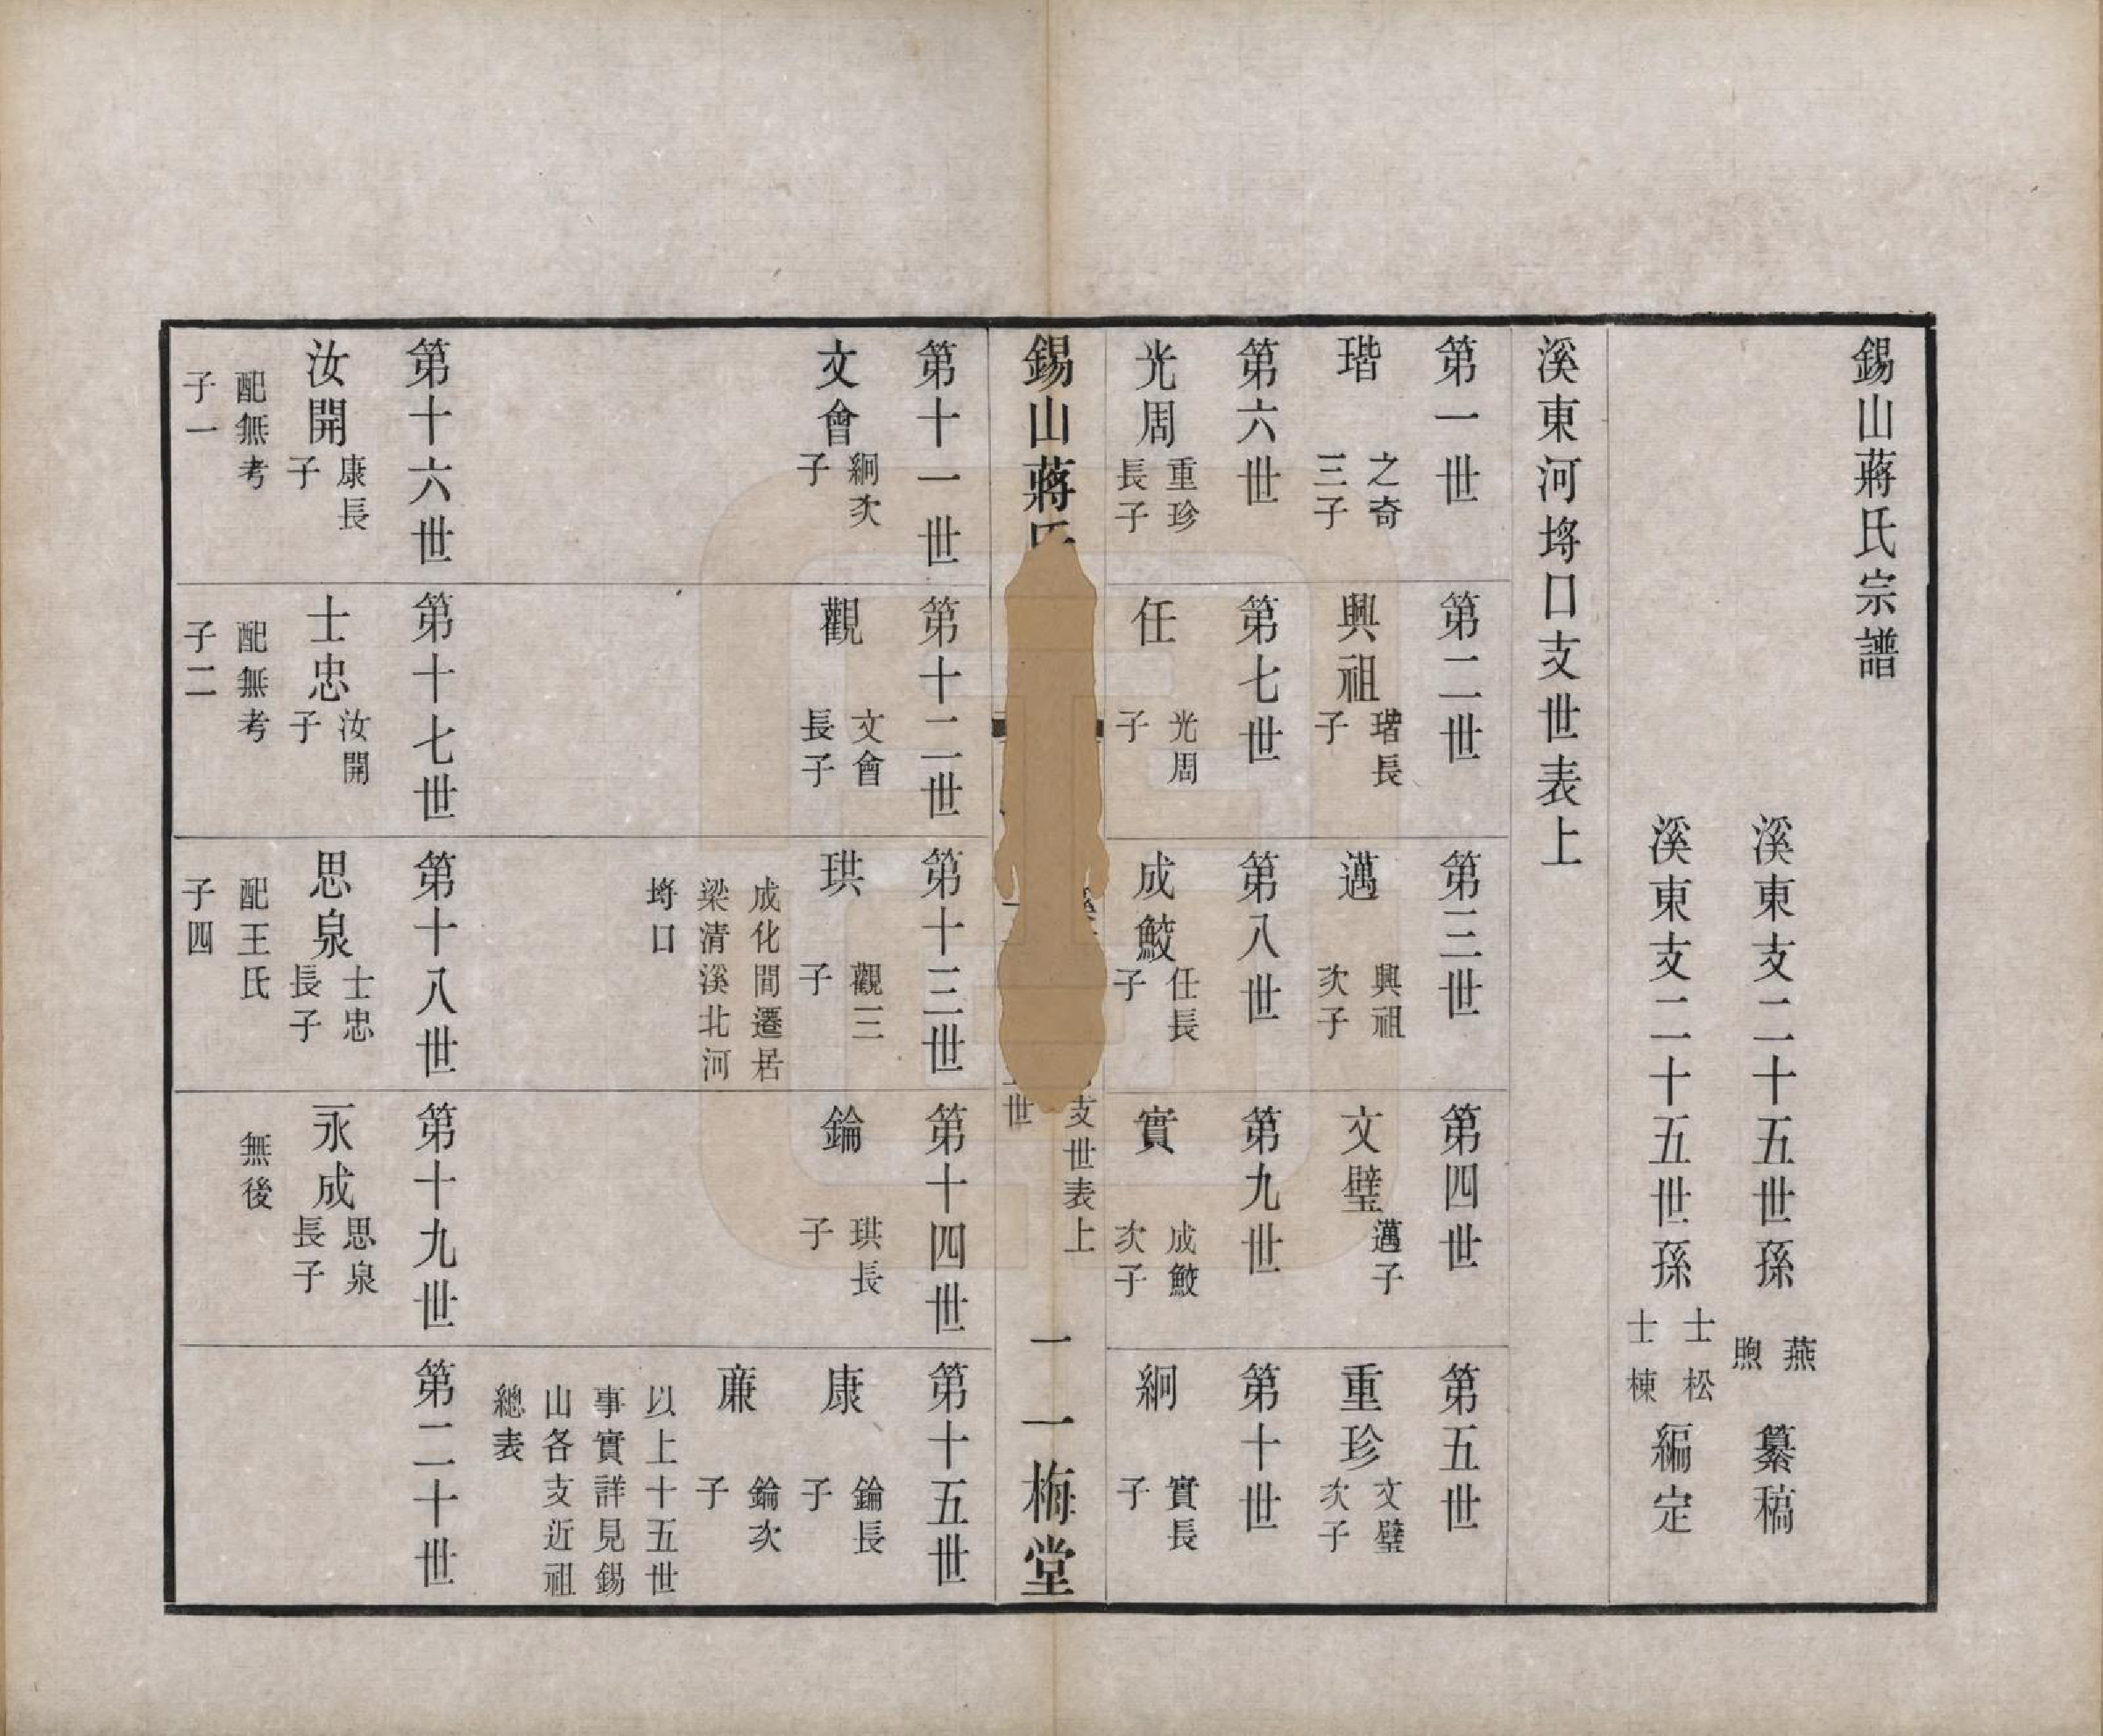 錫山蔣氏宗譜
溪東支二十五世孫燕煦纂稿
溪東支二十五世孫士松士棟編定
溪東河埓口支世表上
第一世
瑎 之奇三子
第二世
興祖 瑎長子
第三世
邁 興祖次子
第四世
文璧 邁子
第五世
重珍 文璧次子
第六世
光周 重珍長子
第七世
任 光周子
第八世
成鮫 任長子
第九世
實 成鮫次子
第十世
絅 實長子
錫山蔣
支世表上
世
一
一梅堂
第十一世
文會 絅次子
第十二世
觀 文會長子
第十三世
珙 觀三子
成化間遷居
梁清溪北河
埓口
第十四世
鑰 珙長子
第十五世
康 鑰長子
廉 鑰次子
以上十五世
事實詳見錫
山各支近祖
總表
第十六世
汝開 康長子
配無考
子一
第十七世
士忠 汝開子
配無考
子二
第十八世
思泉 士忠長子
配王氏
子四
第十九世
永成 思泉長子
無後
第二十世